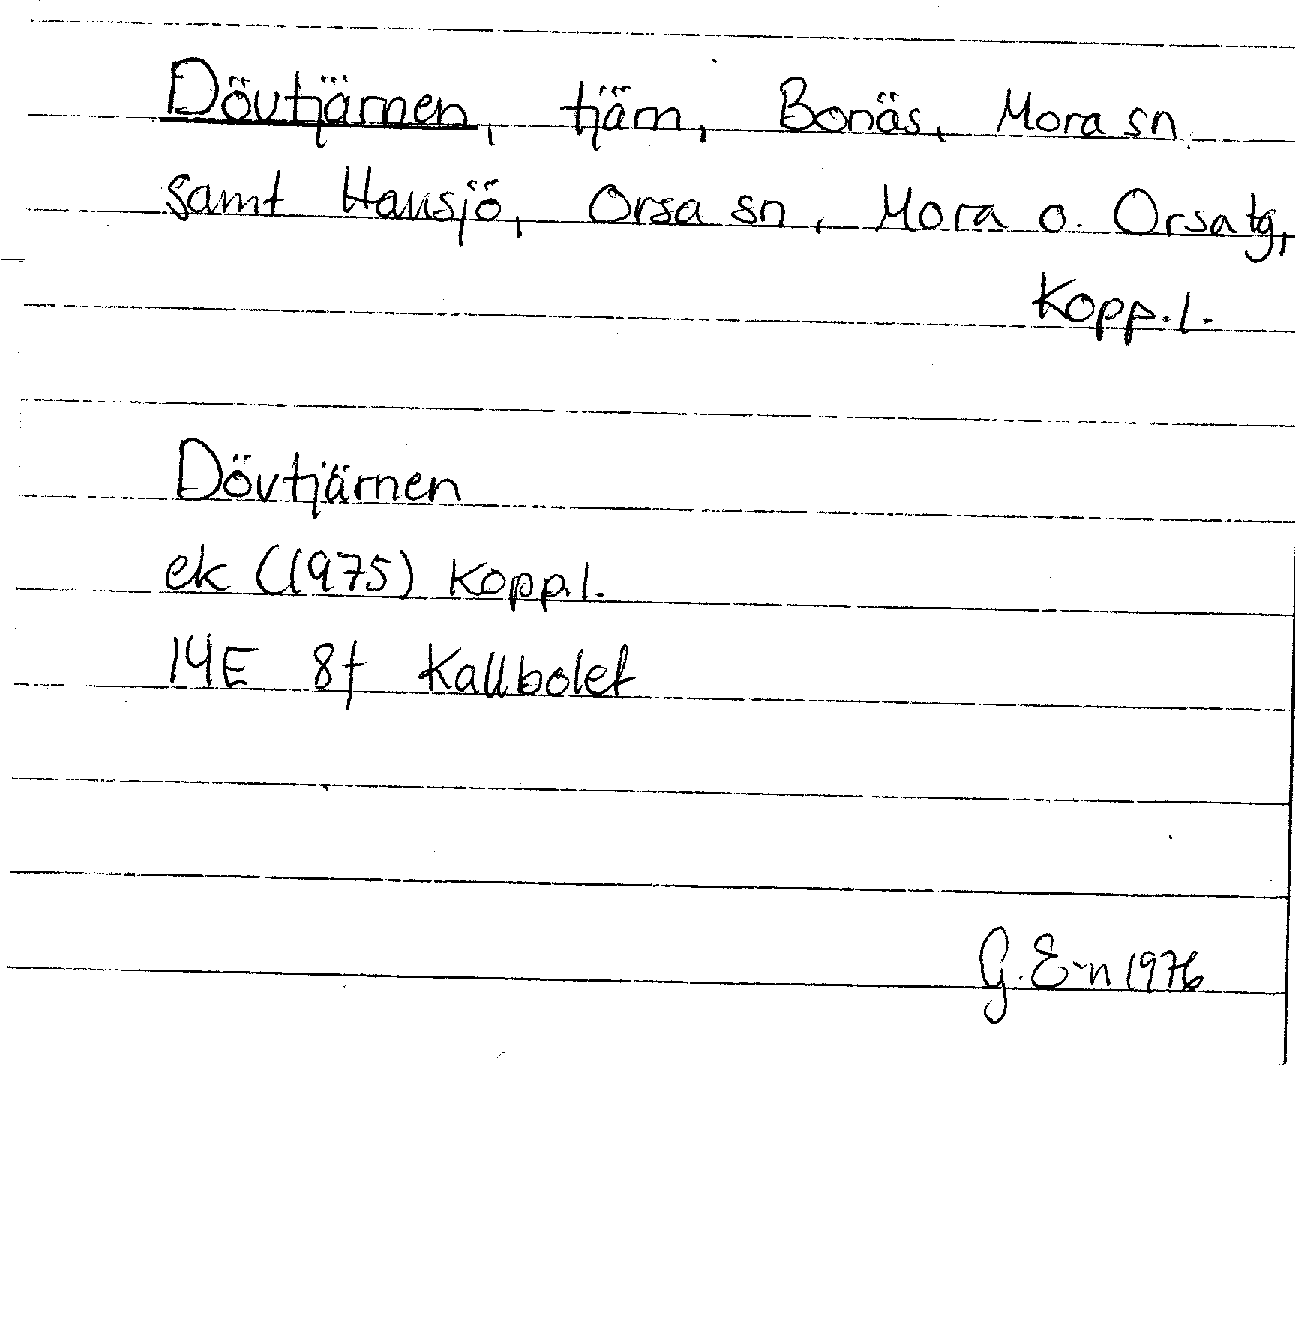 Dövtjärnen, tjärn, Bonäs, Mora sn
samt Hansjö, Orsa sn, Mora o. Orsa tg,
Kopp.l.
Dövtjärnen
ek (1975) Kopp.l.
14E 8f Kallbolet
G. E-n 1976